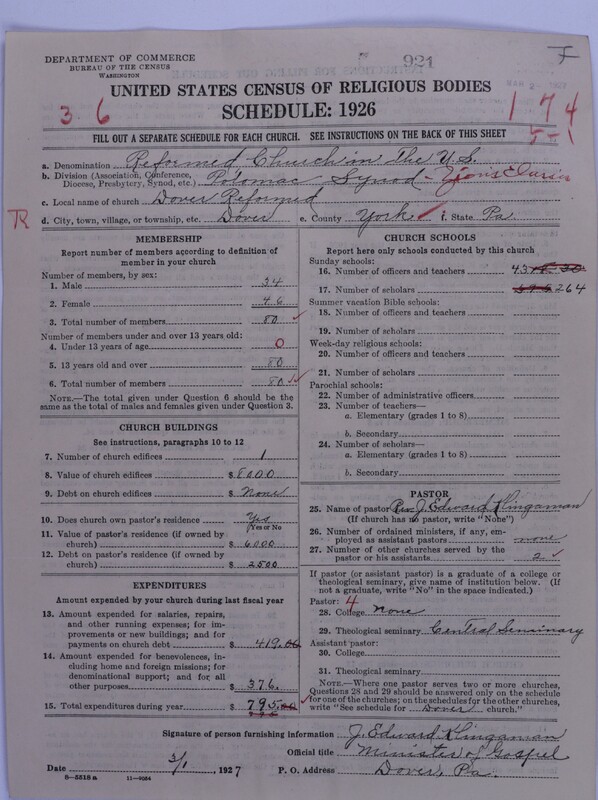 921
DEPARTMENT OF COMMERCE
BUREAU OF THE CENSUS
WASHINGTON
UNITED STATES CENSUS OF RELIGIOUS BODIES
SCHEDULE: 1926
3 6
1 7 4
5-1
FILL OUT A SEPARATE SCHEDULE FOR EACH CHURCH. SEE INSTRUCTIONS ON THE BACK OF THIS SHEET
a. Denomination Reformed Church in The U.S.
b. Division (Association, Conference, Diocese, Presbytery, Synod, etc.) Potomac Synod - Zions Classis
c. Local name of church Dover Reformed
d. City, town, village, or township, etc. Dover e. County York f. State Pa
MEMBERSHIP
Report number of members according to definition of member in your church
Number of members, by sex:
1. Male 34
2. Female 46
3. Total number of members 80
Number of members under and over 13 years old:
4. Under 13 years of age 0
5. 13 years old and over 80
6. Total number of members 80
NOTE.—The total given under Question 6 should be the same as the total of males and females given under Question 3.
CHURCH BUILDINGS
See instructions, paragraphs 10 to 12
7. Number of church edifices 1
8. Value of church edifices $ 8000
9. Debt on church edifices $ None
10. Does church own pastor's residence Yes
(Yes or No)
11. Value of pastor's residence (if owned by church) $ 6000
12. Debt on pastor's residence (if owned by church) $ 2500
EXPENDITURES
Amount expended by your church during last fiscal year
13. Amount expended for salaries, repairs, and other running expenses; for improvements or new buildings; and for payments on church debt $ 419.00
14. Amount expended for benevolences, including home and foreign missions; for denominational support; and for all other purposes $ 376.
15. Total expenditures during year $ 795.00
CHURCH SCHOOLS
Report here only schools conducted by this church
Sunday schools:
16. Number of officers and teachers 43
17. Number of scholars 264
Summer vacation Bible schools:
18. Number of officers and teachers
19. Number of scholars
Week-day religious schools:
20. Number of officers and teachers
21. Number of scholars
Parochial schools:
22. Number of administrative officers
23. Number of teachers—
a. Elementary (grades 1 to 8)
b. Secondary
24. Number of scholars—
a. Elementary (grades 1 to 8)
b. Secondary
PASTOR
25. Name of pastor Rev. J. Edward Klingaman
(If church has no pastor, write "None")
26. Number of ordained ministers, if any, employed as assistant pastors none
27. Number of other churches served by the pastor or his assistants 2
If pastor (or assistant pastor) is a graduate of a college or theological seminary, give name of institution below. (If not a graduate, write "No" in the space indicated.)
Pastor: 4
28. College None
29. Theological seminary Central Seminary
Assistant pastor:
30. College
31. Theological seminary
NOTE.—Where one pastor serves two or more churches, Questions 28 and 29 should be answered only on the schedule for one of the churches; on the schedules for the other churches, write "See schedule for Dover church."
Signature of person furnishing information J. Edward Klingaman
Official title Minister of Gospel
Date 3/1, 1927 P. O. Address Dover, Pa.
8-5518 a 11-9064